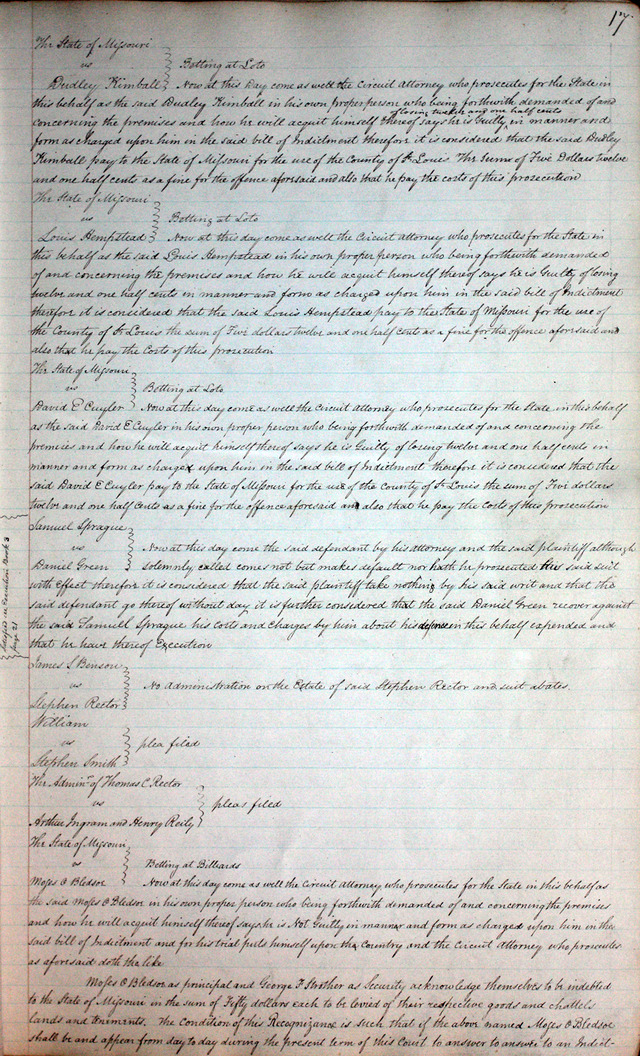 17
The State of Missouri
vs
Betting at Loto
Dudley Kimball Now at this Day come as well the Circuit Attorney who prosecutes for the State in
this behalf as the said Dudley Kimball in his own proper person who being forthwith demanded of and
of losing twelve and one half cents
concerning the premises and how he will acquit himself thereof says he is Guilty in manner and
form as charged upon him in the said bill of Indictment therefore it is considered that the said Dudley
Kimball pay to the State of Missouri for the use of the County of St Louis The sum of Five Dollars twelve
and one half cents as a fine for the offence aforsaid and also that he pay the costs of this prosecution
The State of Missouri
vs
Betting at Loto
Louis Hempstead Now at this day come as well the Circuit Attorney who prosecutes for the State in
this behalf as the said Louis Hempstead in his own proper person who being forthwith demanded
of and concerning the premises and how he will acquit himself thereof says he is Guilty of losing
twelve and one half cents in manner and form as charged upon him in the said bill of Indictment
therefore it is considered that the said Louis Hempstead pay to the State of Missouri for the use of
the County of St Louis the sum of Five dollars twelve and one half cent as a fine for the offence aforsaid and
also that he pay the Costs of this prosecution
The State of Missouri
vs
Betting at Loto
David E Cuyler Now at this day come as well the Circuit Attorney who prosecutes for the State in this behalf
as the said David E Cuyler in his own proper person who being forthwith demanded of and concerning the
premises and how he will acquit himself thereof says he is Guilty of losing twelve and one half cents in
manner and form as charged upon him in the said bill of Indictment therefore it is considered that the
said David E Cuyler pay to the State of Missouri for the use of the County of St Louis the sum of Five dollars
twelve and one half cents as a fine for the offence aforsaid and also that he pay the costs of this prosecution
Samuel Sprague
vs
Now at this day come the said defendant by his attorney and the said plaintiff although
Daniel Green Solemnly called comes not but makes default nor hath he prosecuted this said suit
with effect therefore it is considered that the said plaintiff take nothing by his said writ and that the
said defendant go thereof without day it is further considered that the said Daniel Green recover against
the said Samuell Sprague his costs and charges by him about his defence in this behalf expended and
that he have thereof Execution
page 21
James S Benson
vs
No Administration on the Estate of said Stephen Rector and suit abates.
Stephen Rector
William
vs
plea filed
Stephen Smith
The Adminr of Thomas C Rector
vs
pleas filed
Arthur Ingram and Henry Reily
The State of Missouri
vs
Betting at Billiards
Moses O Bledsoe Now at this day come as well the Circuit Attorney who prosecutes for the State in this behalf as
the said Moses O Bledsoe in his own proper person who being forthwith demanded of and concerning the premises
and how he will acquit himself thereof says he is Not Guilty in manner and form as charged upon him in the
said bill of Indictment and for his trial puts himself upon the Country and the Circuit Attorney who prosecutes
as aforesaid doth the like
Moses O Bledsoe as principal and George F Strother as Security acknowledge themselves to be indebted
to the State of Missouri in the sum of Fifty dollars each to be levied of their respective goods and chattels
lands and tenements. The Condition of this Recognizance is such that if the above named Moses O Bledsoe
shall be and appear from day to day during the present term of this Court to answer to answer to an Indict-